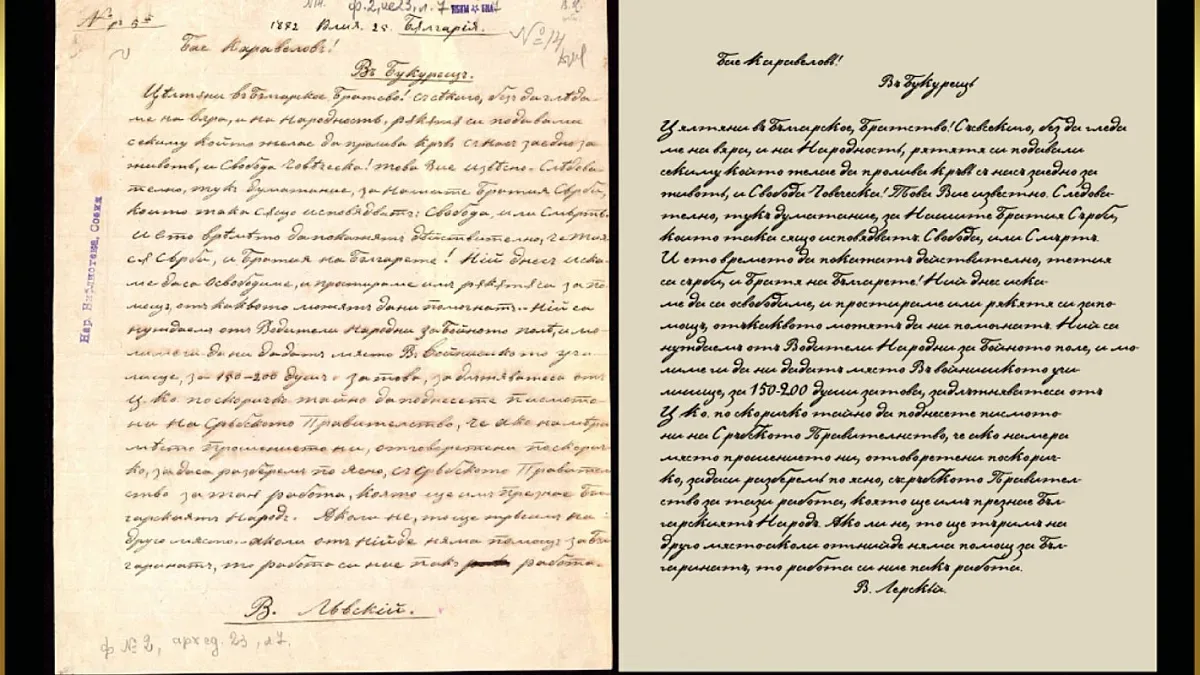 № р 55
ф.2, ие23, л. 7
НБКМ БИА
1872 Влия. 25. Бѫлгарія.
№ 14
Бае Каравеловъ!
Въ Букурещъ.
Цѣлтяни въ Бѫлгарское Братство! Съсѣкиго, безъ да глѣда-
ме на вяра, и на Народность, рѫкѫтя си подавами
секиму който желае да пролива кръвъ съ насъ заедно за
животъ, и Свобода Човѣческа! това Вие извѣсно. Слѣдова-
телно, тукъ думатание, за нашите Братия Сѫрби,
които така сѫщо исповядватъ: Свобода, или Смърть.
И ето врѣмѣто да покажѫтъ дѣйствително, че тия
сѫ Сѫрби, и Братия на Бѫлгарете! Ній днесъ иска-
ме да са Освободиме, и простираме имъ рѫкѫтя са за по-
мощъ, отъ каквото можѫтъ да ни помогнатъ. Ній са
нуждаемъ отъ Водители Народни за Бойното полѣ, и мо-
лиме ги да ни дадѫтъ място В. Войнишкото учи-
лище, за 150-200 души: затова, задлъжяватеса отъ
Ц. Ко. по скоричко тайно да поднесете писмото
ни на Сѫрбското Правителство, че ако намѣри
мѣсто прошението ни, отговоретени по скорич-
ко, за даса разберемъ по Ясно, съ Сѫрбското Правител
ство за тая работа, която ще имъ презнае Бѫл-
гарскиятъ Народъ. Ако ли не, то ще търсимъ на
друго място. ако ли отъ нийде няма помощъ за Бѫл-
гаринатъ, то работа са ние пакъ работа.
В. Лѣвскій.
ф №2, арх ед. 23, л 7.
Нар. Библиотека, София
Бае Каравеловъ!
Въ Букурещъ
Цялтяни въ Бѫлгарское, Братство! Съсвекиго, без да гледа
ме на вяра, и на Народность, рятятя си подавали
секиму който телае да пролива кръвъ съ насъ заедно за
животъ, и Свобода Човеческа! Това Вие известно. Следова-
телно, тукъ думатание, за Нашите Братия Сърби,
които така сящо исповядватъ. Свобода, или Смърть.
И ето времето да покатятъ действително, тетия
са сърби, и Братя на Българете! Ний днес иска-
ме да са освободиме, и простираме или рякятя си запо-
мощъ, отъкаквото мотятъ да ни помогнатъ. Ний са
нутдаемъ отъ Водители Народни за Бойното поле, и мо-
лиме ги да ни дадятъ място Въ войнишкото учи-
лишще, за 150-200 души затова, задлътняватеса отъ
Ц Ко. по скоричко тайно да поднесете писмото
ни на Сръбското Правителнство, че ако намера
място прошението ни, отговоретени поскорич-
ко, задаси разберемъ по ясно, съ сръбското Правител-
ство за тази работа, която ще имъ презнае Бъл-
гарскиятъ Народъ. Ако ли не, то ще търимъ на
друго място аколи отнийде няма помощ за Бъл-
гаринатъ, то работа са ние пакъ работа.
В. Лерскый.